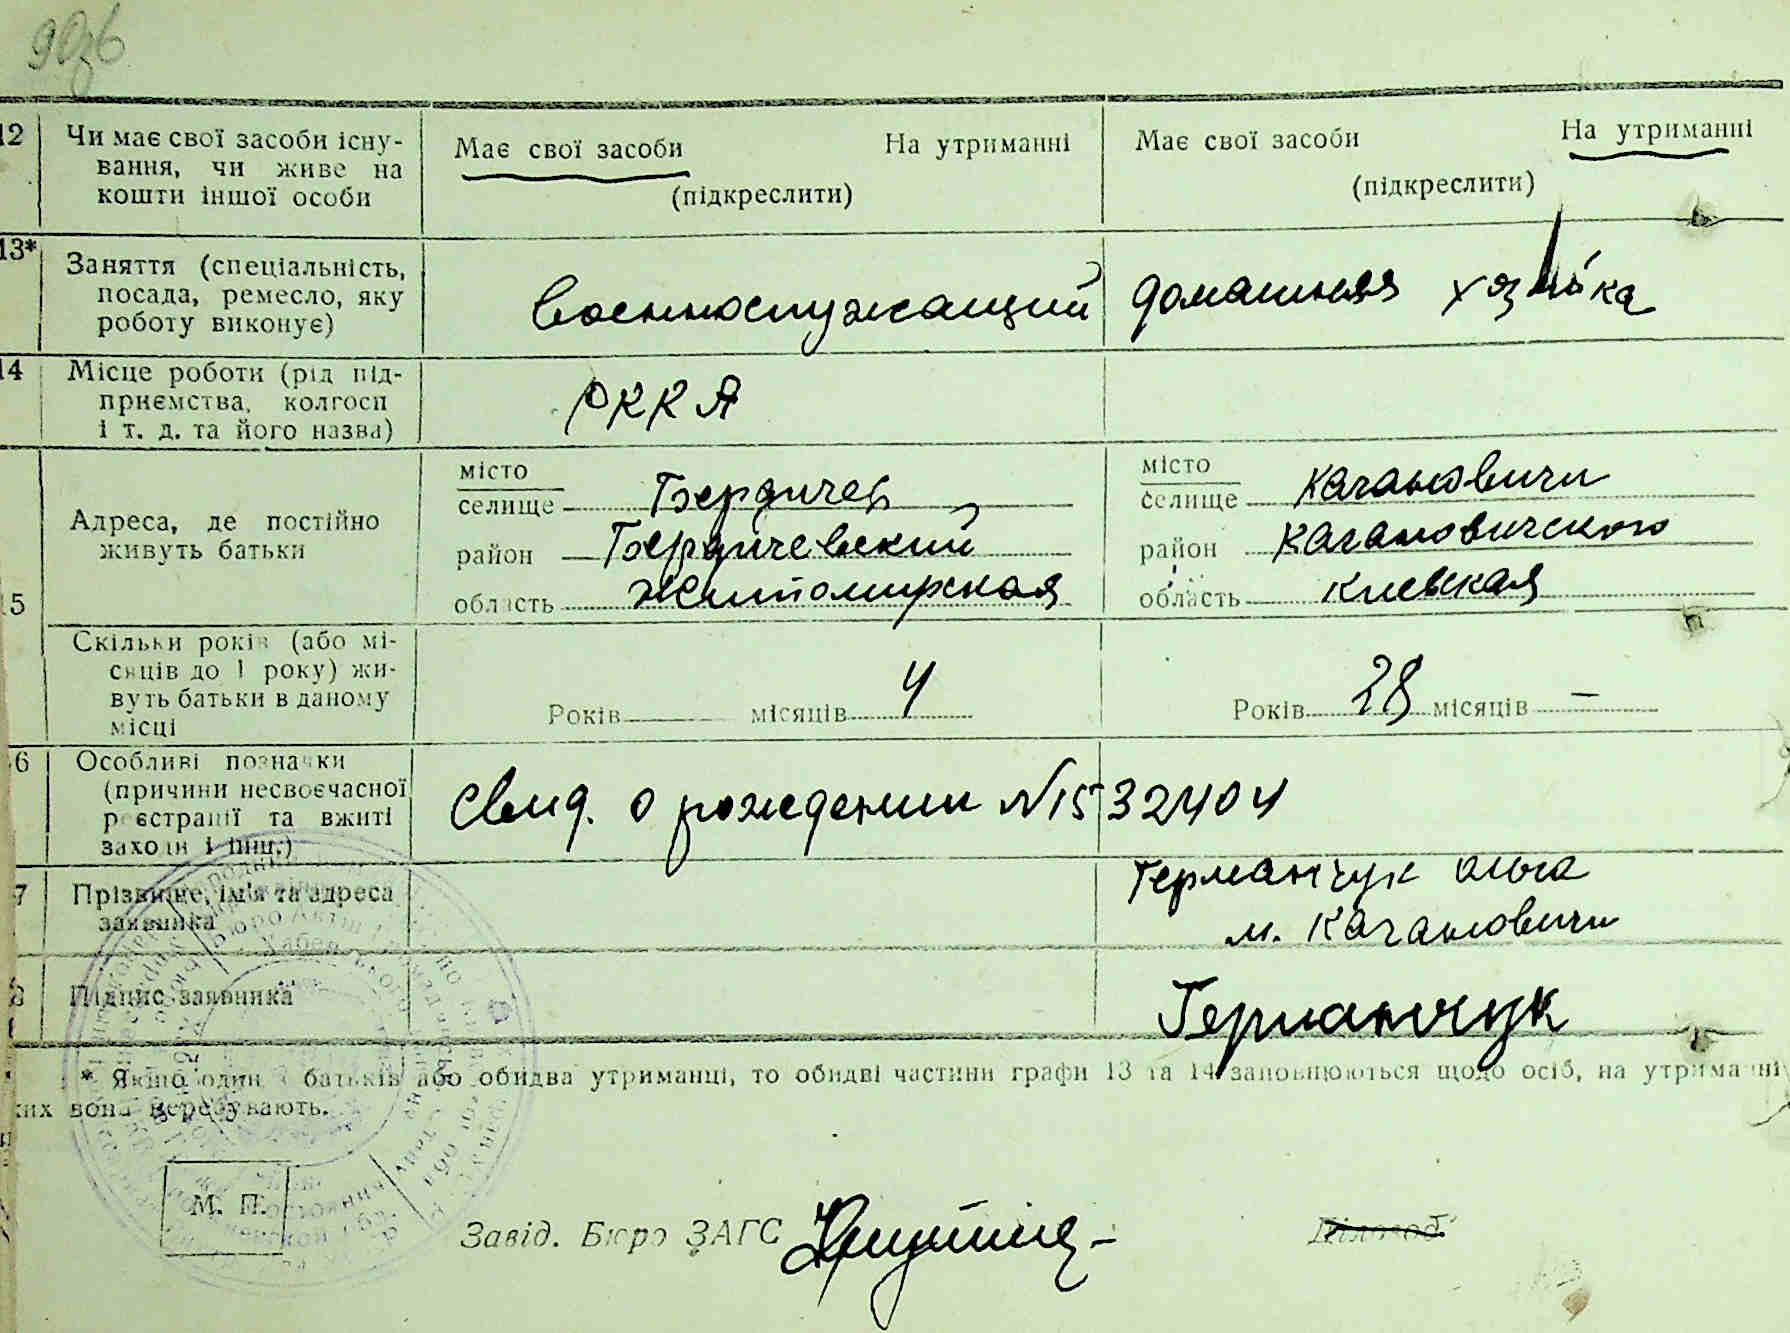 12 Чи має свої засоби існу-
вання, чи живе на
кошти іншої особи
Має свої засоби На утриманні
(підкреслити)
Має свої засоби На утриманні
(підкреслити)
13* Заняття (спеціальність,
посада, ремесло, яку
роботу виконує)
Военнослужащий
домашняя хозяйка
14 Місце роботи (рід під-
приємства, колгосп
і т. д. та його назва)
РККА
15 Адреса, де постійно
живуть батьки
місто
селище Бердичев
район Бердичевский
область Житомирская
місто
селище Кагановичи
район Кагановичского
область Киевская
Скільки років (або мі-
сяців до 1 року) жи-
вуть батьки в даному
місці
Років місяців 4
Років 28 місяців —
6 Особливі позначки
(причини несвоєчасної
реєстрації та вжиті
заходи і інш.)
Свид. о рождении N1532404
7 Прізвище, ім'я та адреса
заявника
Германчук Ольга
м. Кагановичи
8 Підпис заявника
Германчук
* Якщо один з батьків або обидва утриманці, то обидві частини графи 13 та 14 заповнюються щодо осіб, на утриманні
яких вони перебувають.
М. П.
Завід. Бюро ЗАГС